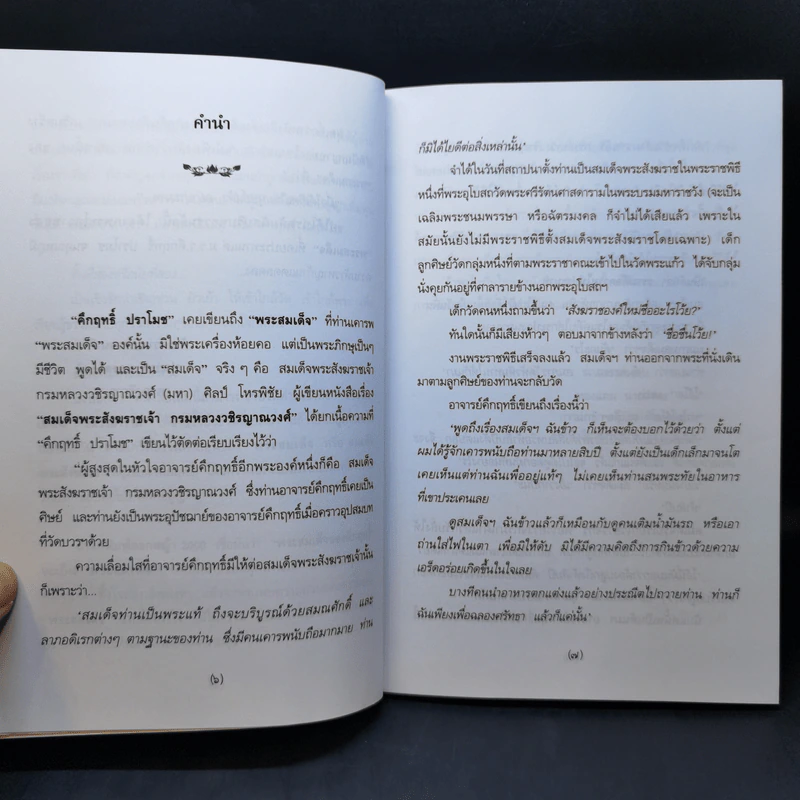 คำนำ
“คึกฤทธิ์ ปราโมช” เคยเขียนถึง “พระสมเด็จ” ที่ท่านเคารพ
“พระสมเด็จ” องค์นั้น มิใช่พระเครื่องห้อยคอ แต่เป็นพระภิกษุเป็นๆ
มีชีวิต พูดได้ และเป็น “สมเด็จ” จริง ๆ คือ สมเด็จพระสังฆราชเจ้า
กรมหลวงวชิรญาณวงศ์ (มหา) ศิลป์ โหรพิชัย ผู้เขียนหนังสือเรื่อง
“สมเด็จพระสังฆราชเจ้า กรมหลวงวชิรญาณวงศ์” ได้ยกเนื้อความที่
“คึกฤทธิ์ ปราโมช” เขียนไว้ตัดต่อเรียบเรียงไว้ว่า
“ผู้สูงสุดในหัวใจอาจารย์คึกฤทธิ์อีกพระองค์หนึ่งก็คือ สมเด็จ
พระสังฆราชเจ้า กรมหลวงวชิรญาณวงศ์ ซึ่งท่านอาจารย์คึกฤทธิ์เคยเป็น
ศิษย์ และท่านยังเป็นพระอุปัชฌาย์ของอาจารย์คึกฤทธิ์เมื่อคราวอุปสมบท
ที่วัดบวรฯด้วย
ความเลื่อมใสที่อาจารย์คึกฤทธิ์มีให้ต่อสมเด็จพระสังฆราชเจ้านั้น
ก็เพราะว่า...
‘สมเด็จท่านเป็นพระแท้ ถึงจะบริบูรณ์ด้วยสมณศักดิ์ และ
ลาภอดิเรกต่างๆ ตามฐานะของท่าน ซึ่งมีคนเคารพนับถือมากมาย ท่าน
(๖)
ก็มิได้ไยดีต่อสิ่งเหล่านั้น’
จำได้ในวันที่สถาปนาตั้งท่านเป็นสมเด็จพระสังฆราชในพระราชพิธี
หนึ่งที่พระอุโบสถวัดพระศรีรัตนศาสดารามในพระบรมมหาราชวัง (จะเป็น
เฉลิมพระชนมพรรษา หรือฉัตรมงคล ก็จำไม่ได้เสียแล้ว เพราะใน
สมัยนั้นยังไม่มีพระราชพิธีตั้งสมเด็จพระสังฆราชโดยเฉพาะ) เด็ก
ลูกศิษย์วัดกลุ่มหนึ่งที่ตามพระราชาคณะเข้าไปในวัดพระแก้ว ได้จับกลุ่ม
นั่งคุยกันอยู่ที่ศาลารายข้างนอกพระอุโบสถฯ
เด็กวัดคนหนึ่งถามขึ้นว่า ‘สังฆราชองค์ใหม่ชื่ออะไรโว้ย?’
ทันใดนั้นก็มีเสียงห้าวๆ ตอบมาจากข้างหลังว่า ‘ชื่อชื่นโว้ย!’
งานพระราชพิธีเสร็จลงแล้ว สมเด็จฯ ท่านออกจากพระที่นั่งเดิน
มาตามลูกศิษย์ของท่านจะกลับวัด
อาจารย์คึกฤทธิ์เขียนถึงเรื่องนี้ว่า
‘พูดถึงเรื่องสมเด็จฯ ฉันข้าว ก็เห็นจะต้องบอกไว้ด้วยว่า ตั้งแต่
ผมได้รู้จักเคารพนับถือท่านมาหลายสิบปี ตั้งแต่ยังเป็นเด็กเล็กมาจนโต
เคยเห็นแต่ท่านฉันเพื่ออยู่แท้ๆ ไม่เคยเห็นท่านสนพระทัยในอาหาร
ที่เขาประเคนเลย
ดูสมเด็จฯ ฉันข้าวแล้วก็เหมือนกับดูคนเติมน้ำมันรถ หรือเอา
ถ่านใส่ไฟในเตา เพื่อมิให้ดับ มิได้มีความคิดถึงการกินข้าวด้วยความ
เอร็ดอร่อยเกิดขึ้นในใจเลย
บางทีคนนำอาหารตกแต่งแล้วอย่างประณีตไปถวายท่าน ท่านก็
ฉันเพียงเพื่อฉลองศรัทธา แล้วก็แค่นั้น’
(๗)